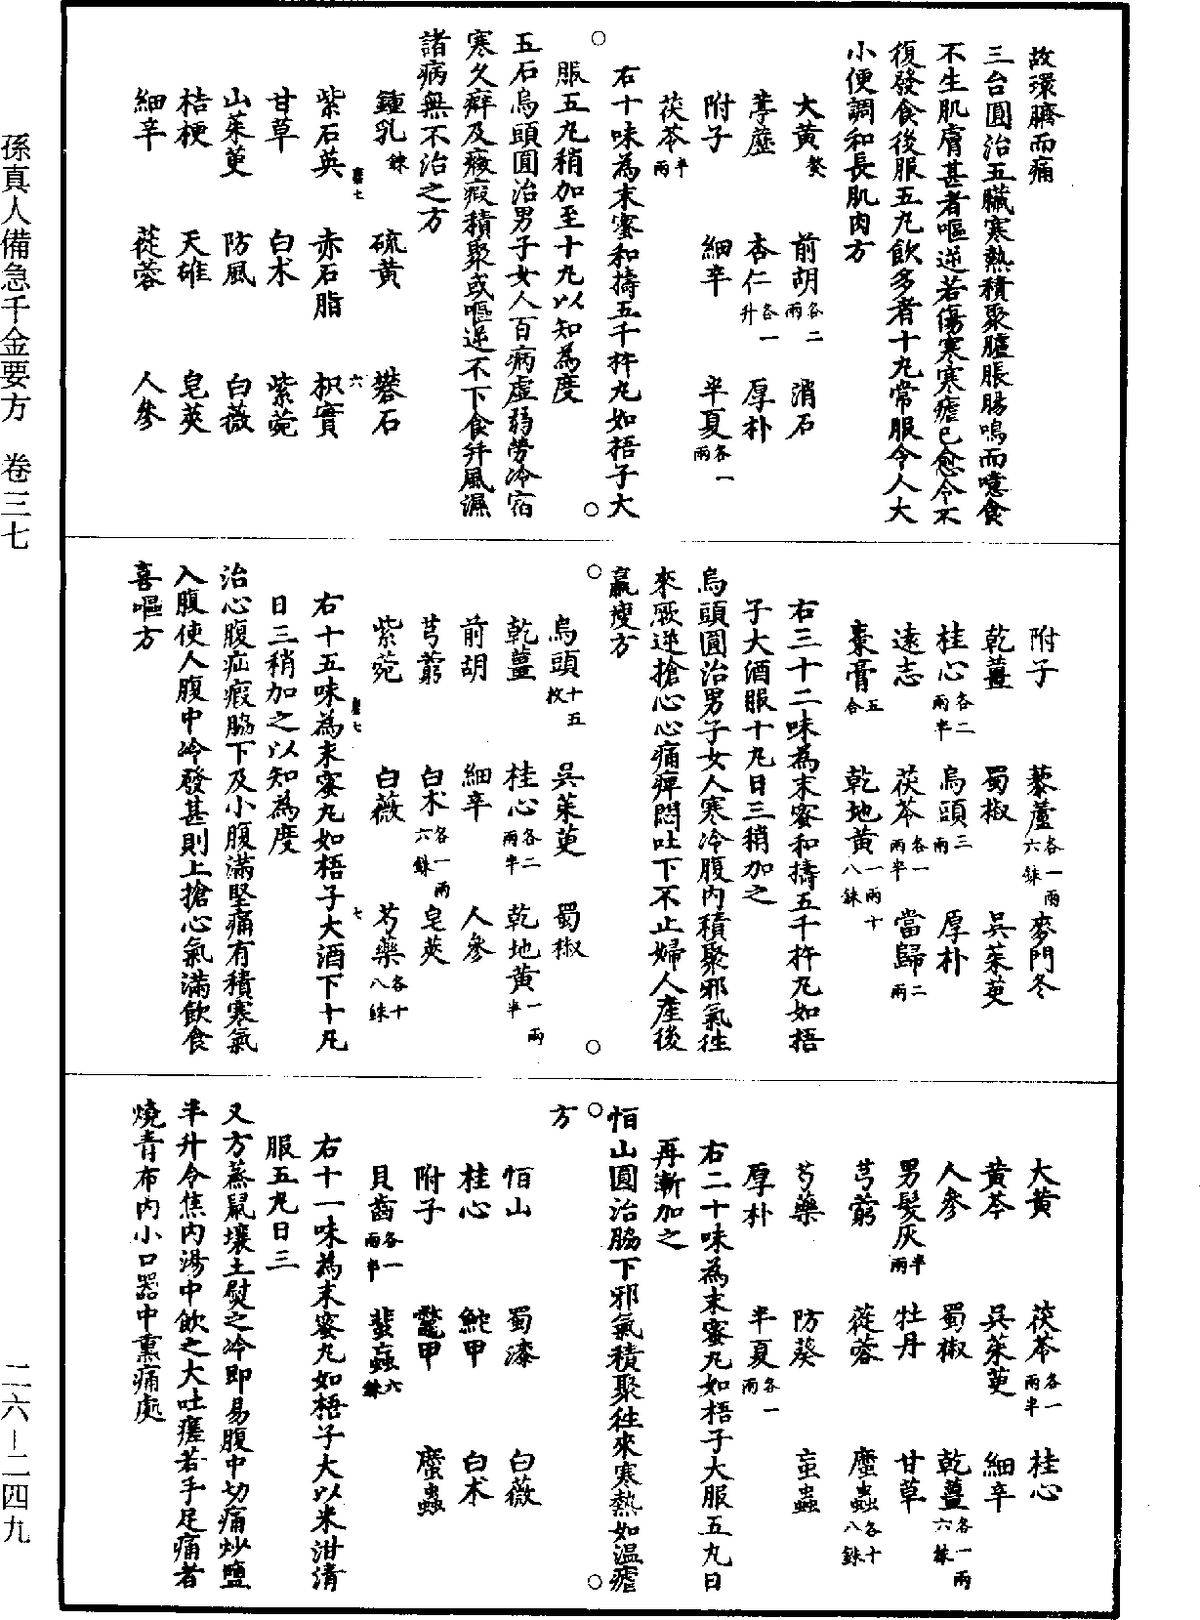 孫真人備急千金要方　卷三七
二六－二四九
故環臍而痛
三台圓治五臟寒熱積聚臚脹腸鳴而噫食
不生肌膚甚者嘔逆若傷寒寒瘧已愈令不
復發食後服五丸飲多者十丸常服令人大
小便調和長肌肉方
大黃熬　前胡各二兩　消石
葶藶　杏仁各一升　厚朴
附子　細辛　半夏各一兩
茯苓半兩
右十味為末蜜和擣五千杵丸如梧子大
服五丸稍加至十丸以知為度
五石烏頭圓治男子女人百病虛弱勞冷宿
寒久癖及癥瘕積聚或嘔逆不下食并風濕
諸病無不治之方
鍾乳鍊　硫黃　礬石
紫石英　赤石脂　枳實
甘草　白朮　紫菀
山茱萸　防風　白薇
桔梗　天雄　皂莢
細辛　蓯蓉　人參
附子　藜蘆各一兩六銖　麥門冬
乾薑　蜀椒　吳茱萸
桂心各二兩半　烏頭三兩　厚朴
遠志　茯苓各一兩半　當歸二兩
棗膏五合　乾地黃一兩十八銖
右三十二味為末蜜和擣五千杵丸如梧
子大酒服十丸日三稍加之
烏頭圓治男子女人寒冷腹內積聚邪氣往
來厥逆搶心心痛痺悶吐下不止婦人產後
羸瘦方
烏頭十五枚　吳茱萸　蜀椒
乾薑　桂心各二兩半　乾地黃一兩半
前胡　細辛　人參
芎藭　白朮各一兩六銖　皂莢
紫菀　白薇　芍藥各十八銖
右十五味為末蜜丸如梧子大酒下十丸
日三稍加之以知為度
治心腹疝瘕脇下及小腹滿堅痛有積寒氣
入腹使人腹中冷發甚則上搶心氣滿飲食
喜嘔方
大黃　茯苓各一兩半　桂心
黃芩　吳茱萸　細辛
人參　蜀椒　乾薑各一兩六銖
男髮灰半兩　牡丹　甘草
芎藭　蓯蓉　䗪蟲各十八銖
芍藥　防葵　䖟蟲
厚朴　半夏各一兩
右二十味為末蜜丸如梧子大服五丸日
再漸加之
恒山圓治脇下邪氣積聚往來寒熱如溫瘧
方
恒山　蜀漆　白薇
桂心　鮀甲　白朮
附子　鼈甲　䗪蟲
貝齒各一兩半　蜚蟲六銖
右十一味為末蜜丸如梧子大以米泔清
服五丸日三
又方蒸鼠壤土熨之冷即易腹中切痛炒鹽
半升令焦內湯中飲之大吐瘥若手足痛者
燒青布內小口器中熏痛處